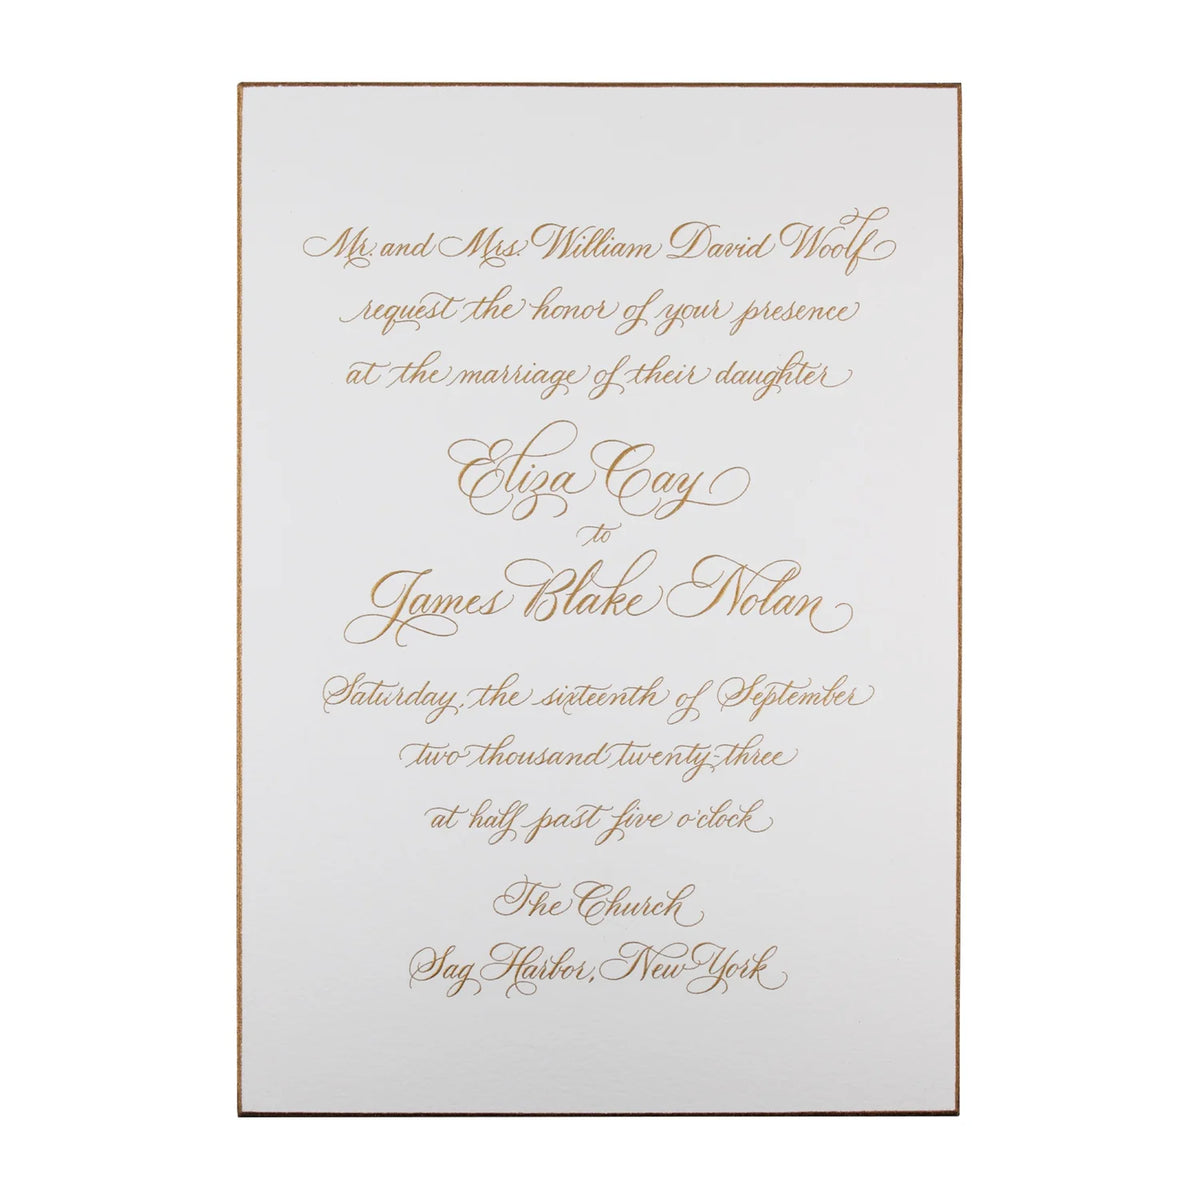 Mr. and Mrs. William David Woolf
request the honor of your presence
at the marriage of their daughter
Eliza Cay
to
James Blake Nolan
Saturday, the sixteenth of September
two thousand twenty-three
at half past five o'clock
The Church
Sag Harbor, New York